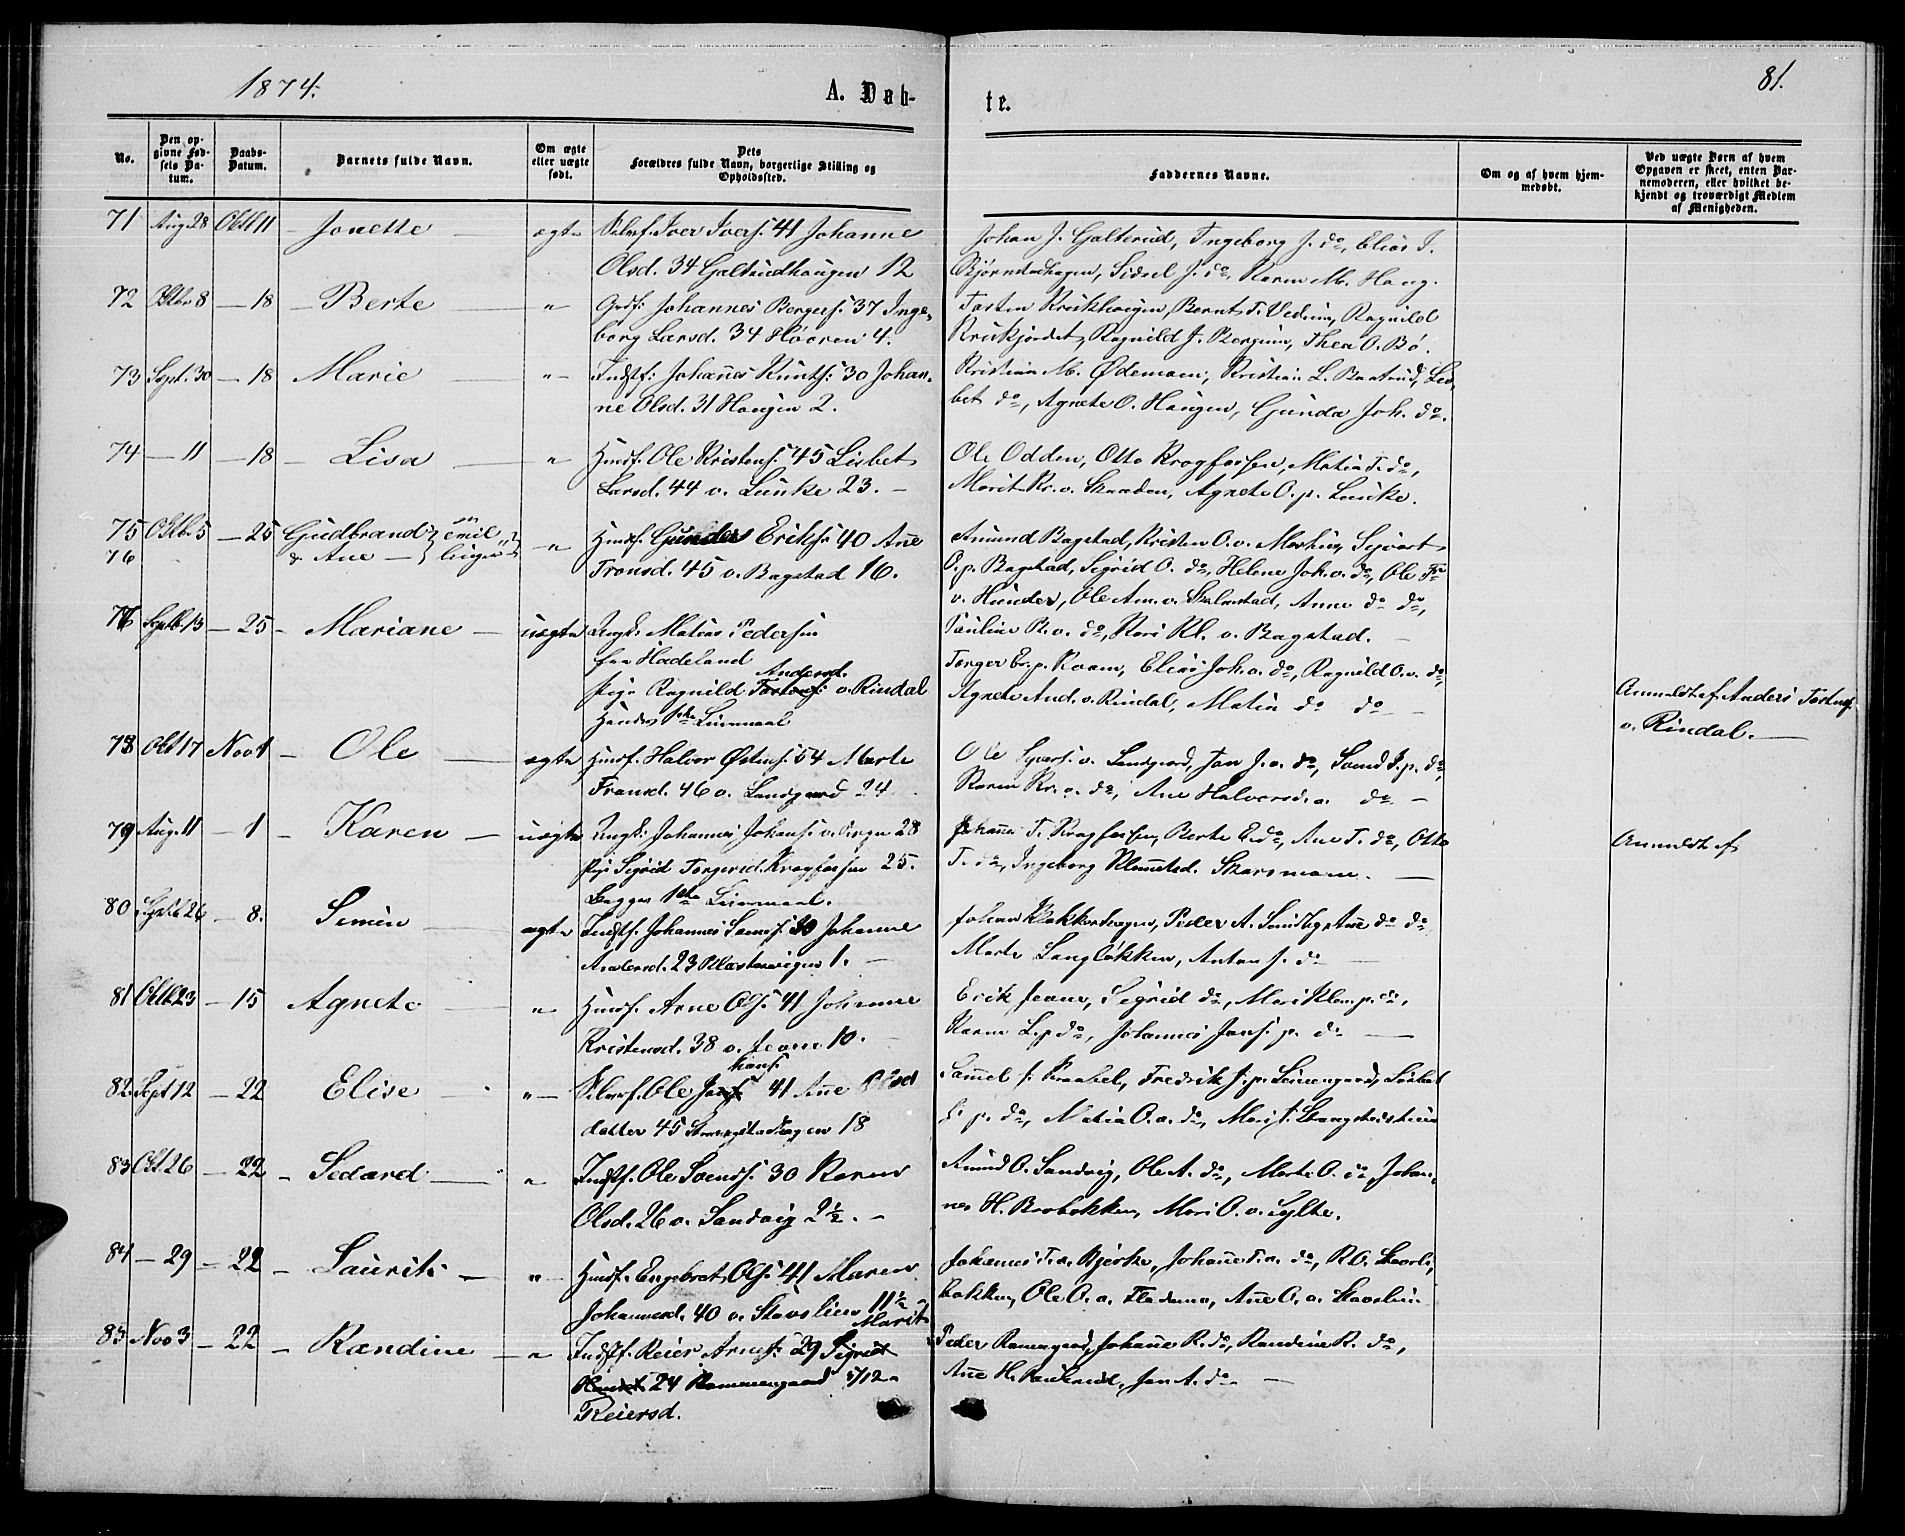 1874.
A. Døb-
te.
81.
No.
Den op-
givne Fød-
sels Da-
tum.
Daabs-
Datum.
Barnets fulde Navn.
Om ægte
eller uægte
født.
Dets
Forældres fulde Navn, borgerlige Stilling og
Opholdssted.
Faddernes Navne.
Om og af hvem hjem-
medøbt.
Ved uægte Børn af hvem
Opgaven er skeet, enten Bar-
nemoderen, eller hvilket be-
kjendt og troværdigt Medlem
af Menigheden.
71 Aug. 28 Oktb 11 – Jonette – ægte Selvef. Iver Ivers. 41 Johanne
Olsd. 34 Galterudhaugen 12
Johan J. Galterud, Ingeborg J. do, Elias I.
Bjørnstadhagen, Sidsel J. do, Karen M. Haug.
72 Oktbr 8 – 18 – Berte – " – Gmf. Johannes Borgers. 37 Inge-
borg Larsd. 34 Høoren 4.
Tosten Krukhaugen, Bernt T. Vedum, Ragnild
Krukjordet, Ragnild J. Bergum, Thea O. Bø.
73 Sept. 30 – 18 Marie – " – Indstf. Johañes Knuts. 30 Johan-
ne Olsd. 31 Haugen 2.
Kristian M. Ødemoen, Kristian L. Baatrud, Lis-
bet do, Agnete O. Haugen, Gunda Joh. do.
74 – 11 – 18 – Lisa – " Husf. Ole Kristens. 45 Lisbet
Larsd. 44 v. Lunke 23. –
Ole Odden, Otto Kragfossen, Matia T. do,
Marit Kr. v. Skraaden, Agnete O. p. Lunke.
75 Oktb. 5 – 25 Gudbrand Emil
76 & Ane –
– " Husf. Gunder Eriks. 40 Añe
Tronsd. 45 v. Bagstad 16.
Amund Bagstad, Kristen O. v. Morken, Syvert
O. p. Bagstad, Sigrid O. do, Helene Joh. v. do, Ole
v. Hunder, Ole Am. v. Skalmstad, Anne do do,
77 Septb 13 – 25 – Mariane – uægte Ungk. Matias Pedersen
fra Hadeland
Andersd.
Pige Ragnild v. Rindal
Handes 1ste Leiermaal
Pauline P. v. do, Kari Kl. v. Bagstad. –
Torger Er. p. Roam, Elias Joh. v. do, Ragnild O. v. do,
Agnete And. v. Rindal, Matia do do –
Anmeldt af Anders Tostens.
v. Rindal. –
78 Okt 17 Nov 1 – Ole – ægte Husf. Halvor Østens. 54 Marte
Fransd. 46 v. Landgaard 24
Ole Syvers. v. Landgaard, Jon J. a. do, Svend I. p. do,
Karen Kr. a. do, Ane Halvorsd. a. do –
79 Aug. 11 – 1 – Karen – uægte Ungk. Johannes Johans. v. Bergum 28
Pige Sigrid Torgersd. Kragfossen 25.
Begges 1ste Leiermaal.
Johannes T. Kragfossen, Berte E. do, Ane T. do, Otto
T. do, Ingeborg Klemetsd. Skarsmoen. –
Anmeldt af
80 Septb 26 – 8. Simen – ægte Indstf. Johannes Simens. 30 Johanne
Andersd. 23 Klostervigen 1. –
Johan Klokkerhagen, Peder A. Sundbye, Ane do do
Marte Langløkken, Anton J. do –
81 Oktb 23 – 15 Agnete – " Husf. Arne Ols. 41 Johanne
Kristensd. 38 v. Jevne 10. –
Erik Jevne, Sigrid do, Mari Klem. p. do,
Karen L. p. do, Johannes Jons. p. do –
82 Sept 12 – 22 Elise – " – Selvef. Ole Hans. 41 Añe Ols
datter 45 Strangstadhagen 18
Samuel J. Kraabel, Fredrik J. p. Steinsgaard, Lisbet
J. p. do, Matia O. a. do, Mari J. Strangstadstuen
83 Okt 26 – 22 – Sedard – " Indstf. Ole Svends. 30 Karen
Olsd. 26 v. Sandvig 2½. –
Amund O. Sandvig, Ole A. do, Marte O. do, Johan-
nes H. Brobakken, Mari O. v. Sylte.
84 – 29 – 22 – Laurits – " – Husf. Engebret Ols. 41 Maren
Johannesd. 40 v. Stavslien 11½
Johannes T. a. Bjerke, Johañe T. a. do, R. O. Stavsli-
bakken, Ole O. a. Flademo, Añe O. a. Stavslien.
85 Nov 3 – 22 – Randine – " Indstf. Reier Arnes. 29 Marit
24 Rammengaard 5/12
Reiersd.
Peder Ramengaard, Johañe R. do, Randine R. do,
Añe H. Paulsrud, Jon A. do –